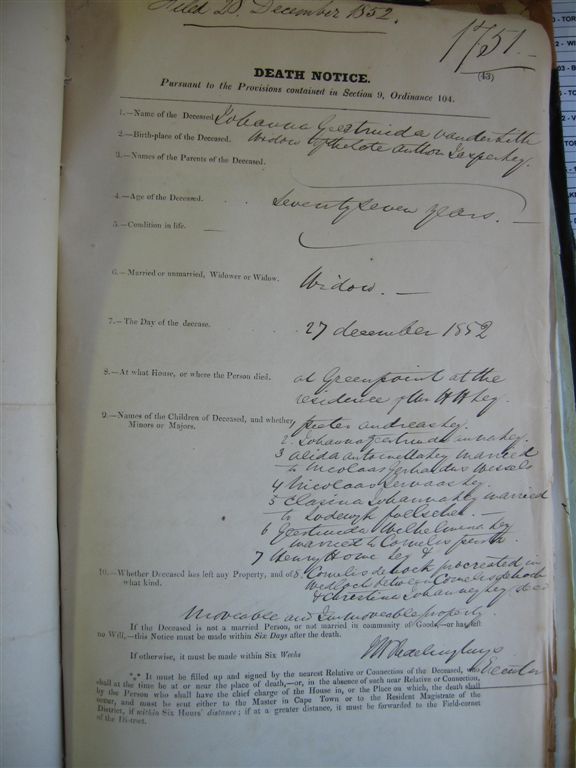 Filed 28. December 1852.
1751.
DEATH NOTICE.
(43)
Pursuant to the Provisions contained in Section 9, Ordinance 104.
1.—Name of the Deceased Johanna Geertruida
2.—Birth-place of the Deceased. Widow of the late
3.—Names of the Parents of the Deceased.
4.—Age of the Deceased. Seventy Seven years. —
5.—Condition in life. —
6.—Married or unmarried, Widower or Widow. Widow. —
7.—The Day of the decease. 27 december 1852
8.—At what House, or where the Person died. at Greenpoint at the
residence of
9.—Names of the Children of Deceased, and whether
Minors or Majors.
pieter andreas
2. Johanna Geertruida
3 alida married
to Nicolaas Gerhardus Wessels
4 Nicolaas Servaas
5 Clasina Johanna married
to Lodewyk
6 Geertruida Wilhelmina
married to Cornelis
7 Henry Howe &
10.—Whether Deceased has left any Property, and of
what kind.
8. Cornelis de Kock procreated in
Wedlock between Cornelis de Kock
& Christina Johanna
Moveable and Immoveable property.
If the Deceased is not a married Person, or not married in community of Goods,—or has left
no Will,—this Notice must be made within Six Days after the death.
If otherwise, it must be made within Six Weeks
Executor
*** It must be filled up and signed by the nearest Relative or Connection of the Deceased, who
shall at the time be at or near the place of death,—or, in the absence of such near Relative or Connection,
by the Person who shall have the chief charge of the House in, or the Place on which, the death shall
occur, and must be sent either to the Master in Cape Town or to the Resident Magistrate of the
District, if within Six Hours' distance; if at a greater distance, it must be forwarded to the Field-cornet
of the District.